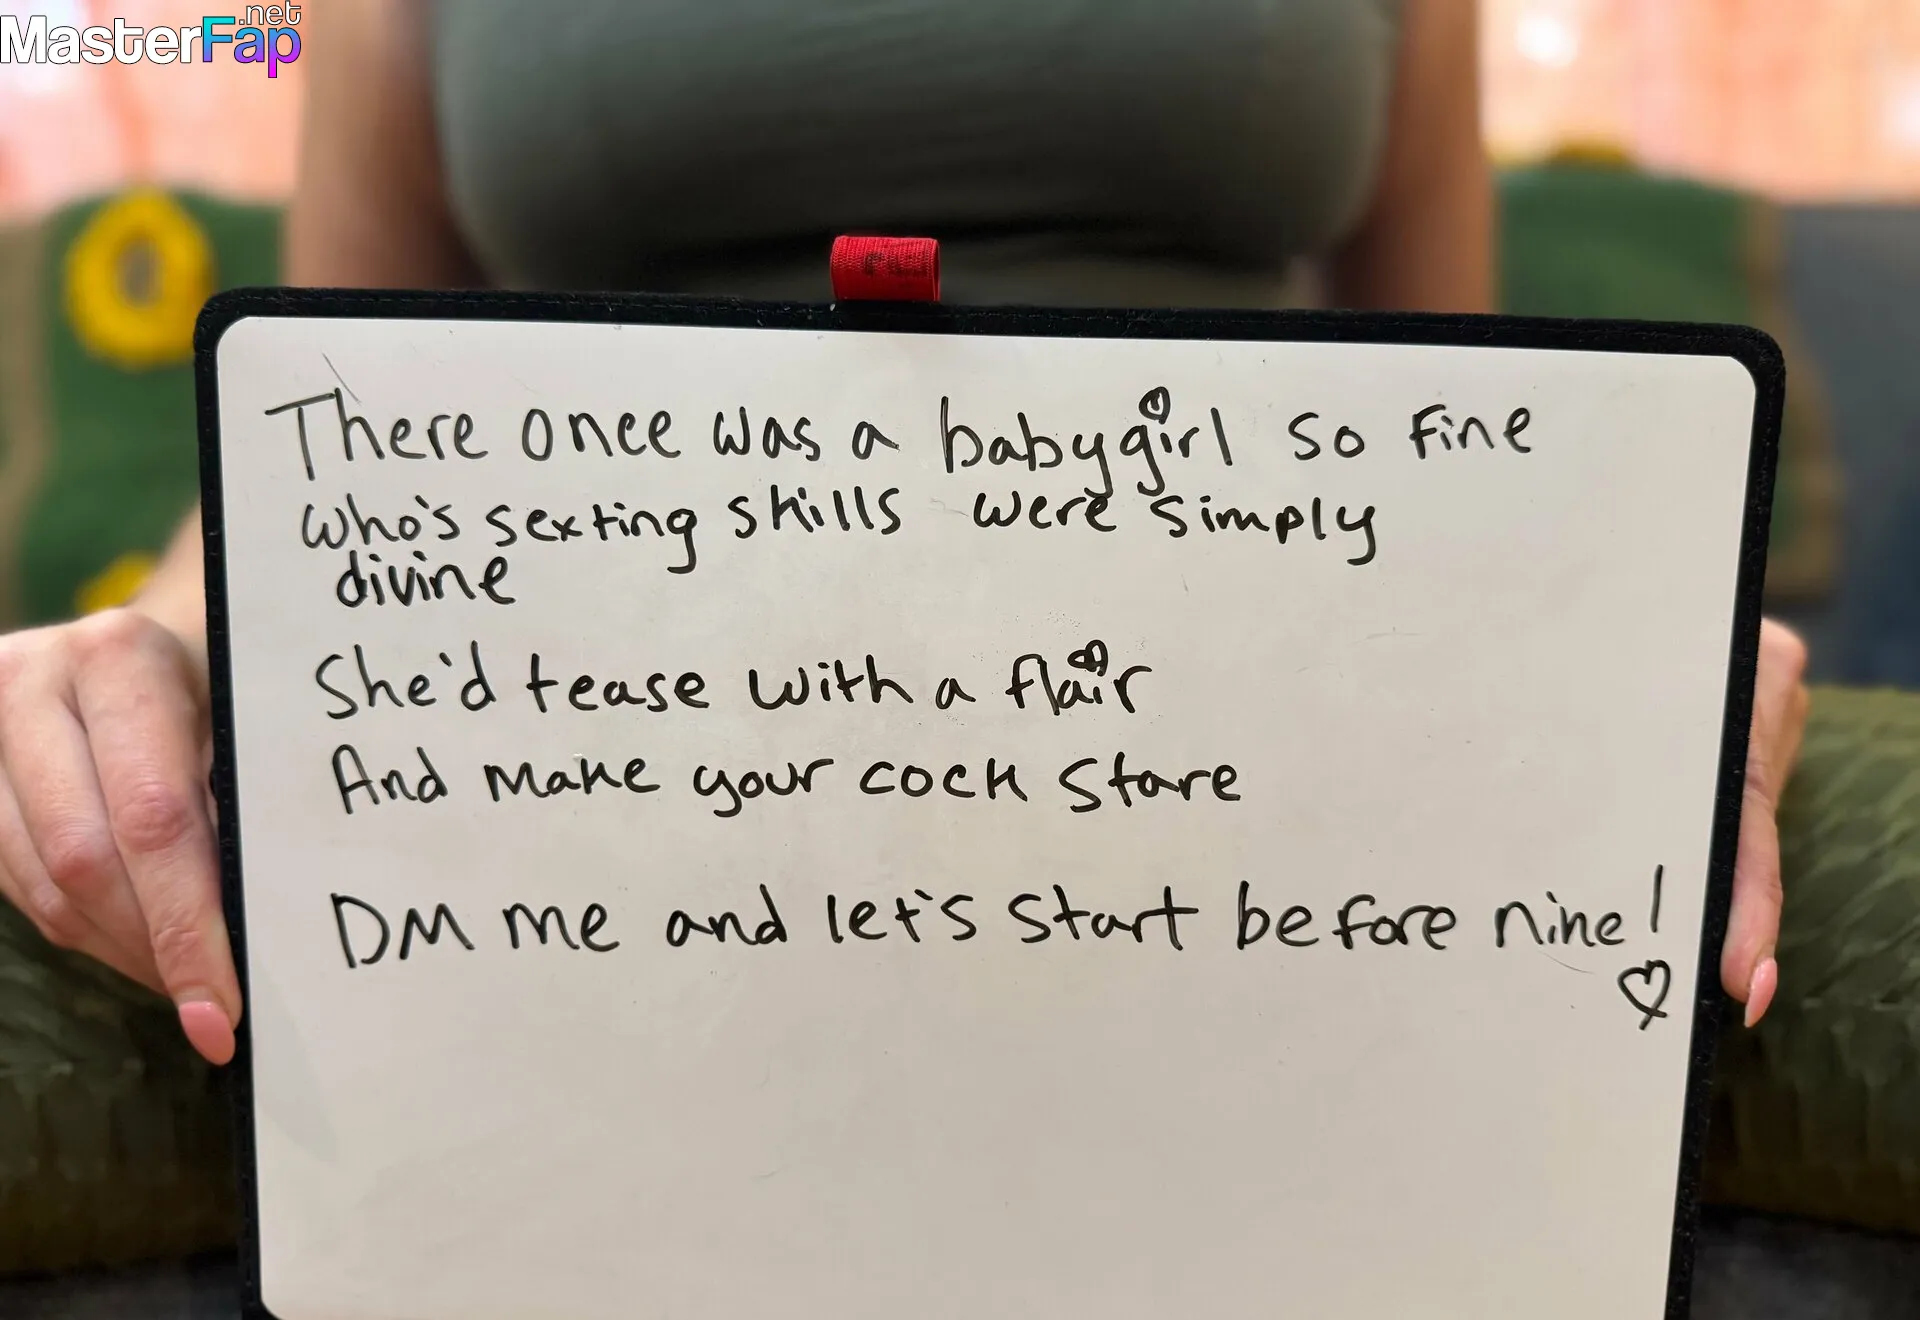 MasterFap.net
There once was a babygirl so fine
who's sexting skills were simply
divine
She'd tease with a flair
And make your cock stare
DM me and let's start before nine!